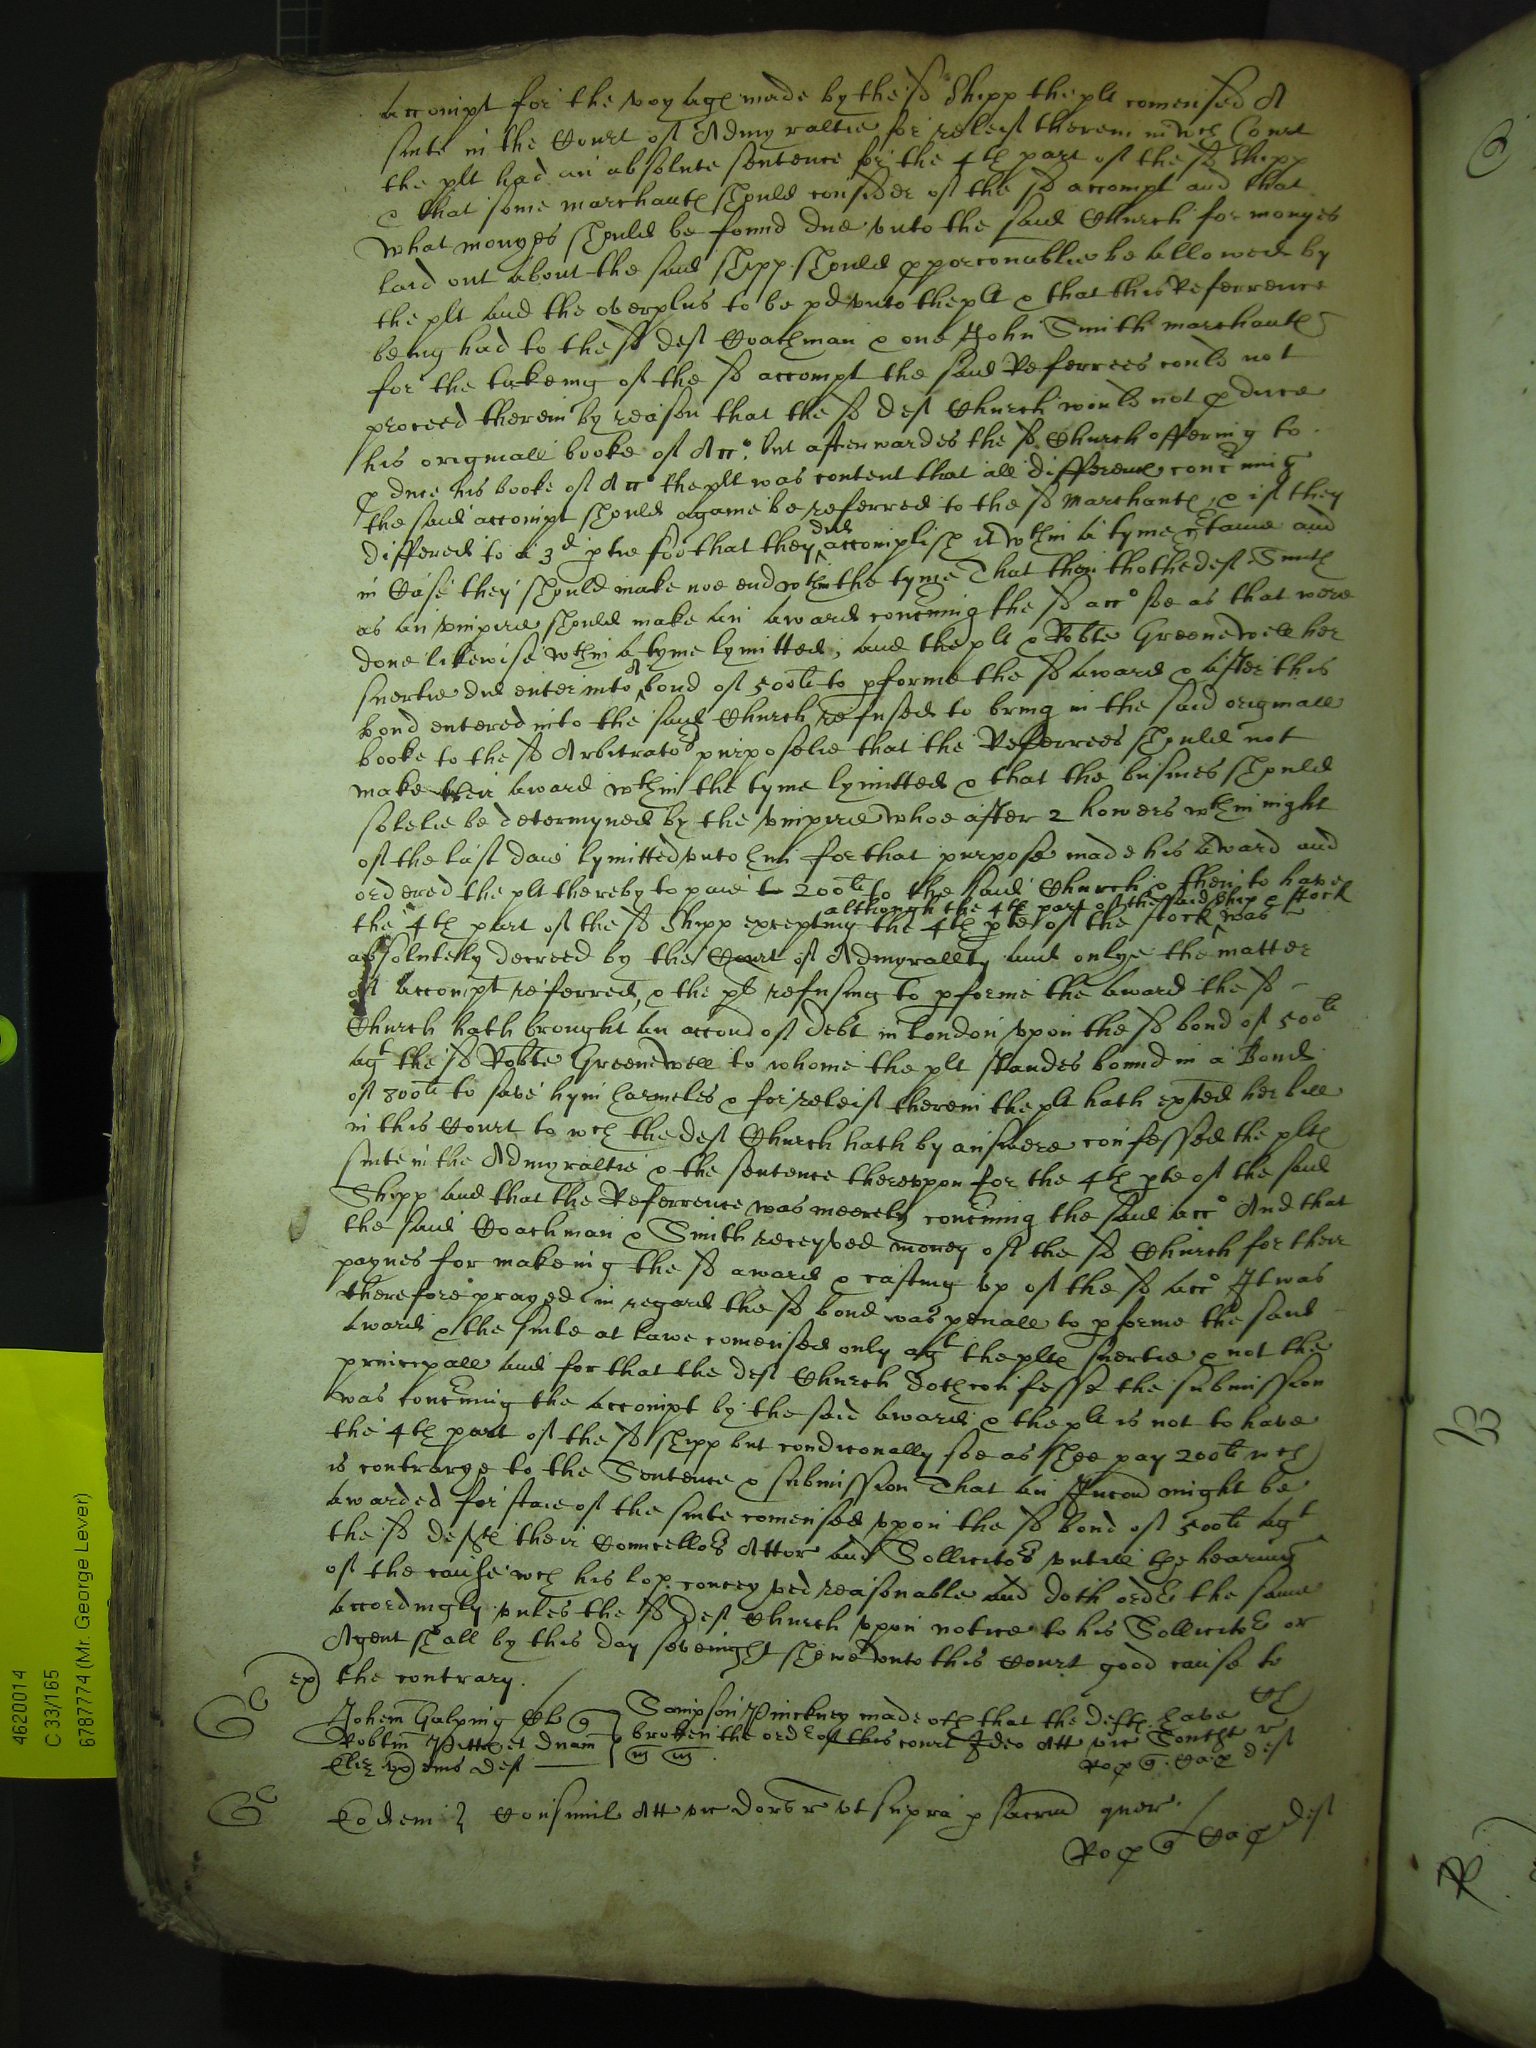 accompt for the voyages made by the sd Shipp the plt comensed A
suite in the Court of Admyraltie for releif therein in wch Court
the plt had an absolute sentence for the 4th part of the sd Shipp
& that some marchants should consider of the sd accompt and that
what monyes should be found due unto the said Church for monyes
laid out about the said shipp should pporconablie be allowed by
the plt and the overplus to be pd unto the plt & that this Referrence
being had to the sd deft Coachman & one John Smith marchants
for the takeing of the sd accompt the said Referrees could not
proceed therein by reason that the sd deft Church would not pduce
his originall booke of Acco. but afterwardes the sd Church offering to
pduce his booke of Acco the plt was content that all differences concning
the said accompt should againe be referred to the sd marchants, & if they
differed to a 3d ptie soe that they did accomplish it wthin a tyme ctaine and
in Case they should make noe end wthin the tyme That then the deft Smith
as an umpire should make an award concning the sd acco soe as that were
done likewise wthin a tyme lymitted, and the plt & Robte Greenewell her
suertie did enter into A bond of 500li to pforme the sd award & after this
bond entered into the said Church refused to bring in the said originall
booke to the sd Arbitrators purposelie that the Referrees should not
make their award wthin the tyme lymitted & that the busines should
solelie be determyned by the umpire whoe after 2 howers wthin night
of the last daie lymitted unto him for that purpose made his award and
ordered the plt thereby to paie 200li to the said Church & then to have
although the 4th part of the said ship & stock
the 4th part of the sd Shipp excepting the 4th pte of the stock was
absolutely decreed by the Court of Admyrallty and onlye the matter
of accompt referred, & the plt refusing to pforme the award the sd
Church hath brought an accon of debt in London upon the sd bond of 500li
agt the sd Robte Greenewell to whome the plt standes bound in a Bond
of 800li to save hym harmeles & for releif therein the plt hath exhted her bill
in this Court to wch the deft Church hath by answere confessed the plts
suite in the Admyraltie & the sentence thereupon for the 4th pte of the said
Shipp and that the Referrence was meerely concning the said acco And that
the said Coachman & Smith receyved money of the sd Church for their
paynes for makeing the sd award & casting up of the sd acco It was
therefore prayed in regard the sd bond was penall to pforme the said
award & the suite at lawe comensed only agt the plts suertie & not the
principall and for that the deft Church doth confesse the submission
was concning the accompt by the said award & the plt is not to have
the 4th part of the sd shipp but condiconally soe as shee pay 200li wch
is contrarye to the Sentence & submission That an Iniuncon might be
awarded for staie of the suite comensed upon the sd bond of 500li agt
the sd defts their Councellors Attor and Sollicitors untill the hearing
of the cause wch his lop. conceyved reasonable and doth order the same
accordingly unles the sd deft Church upon notice to his Sollicitor or
Agent shall by this day sevenight shewe unto this Court good cause to
ex the contrary.
Johem Galping Quer Sampson Pinckney made oth that the defts have
Robtm Pitts et dnam broken the order of this court Ideo Att vic
Eliz ux eius deft
Eodem Consimil Att vic dors r ut supra p sacrm quer